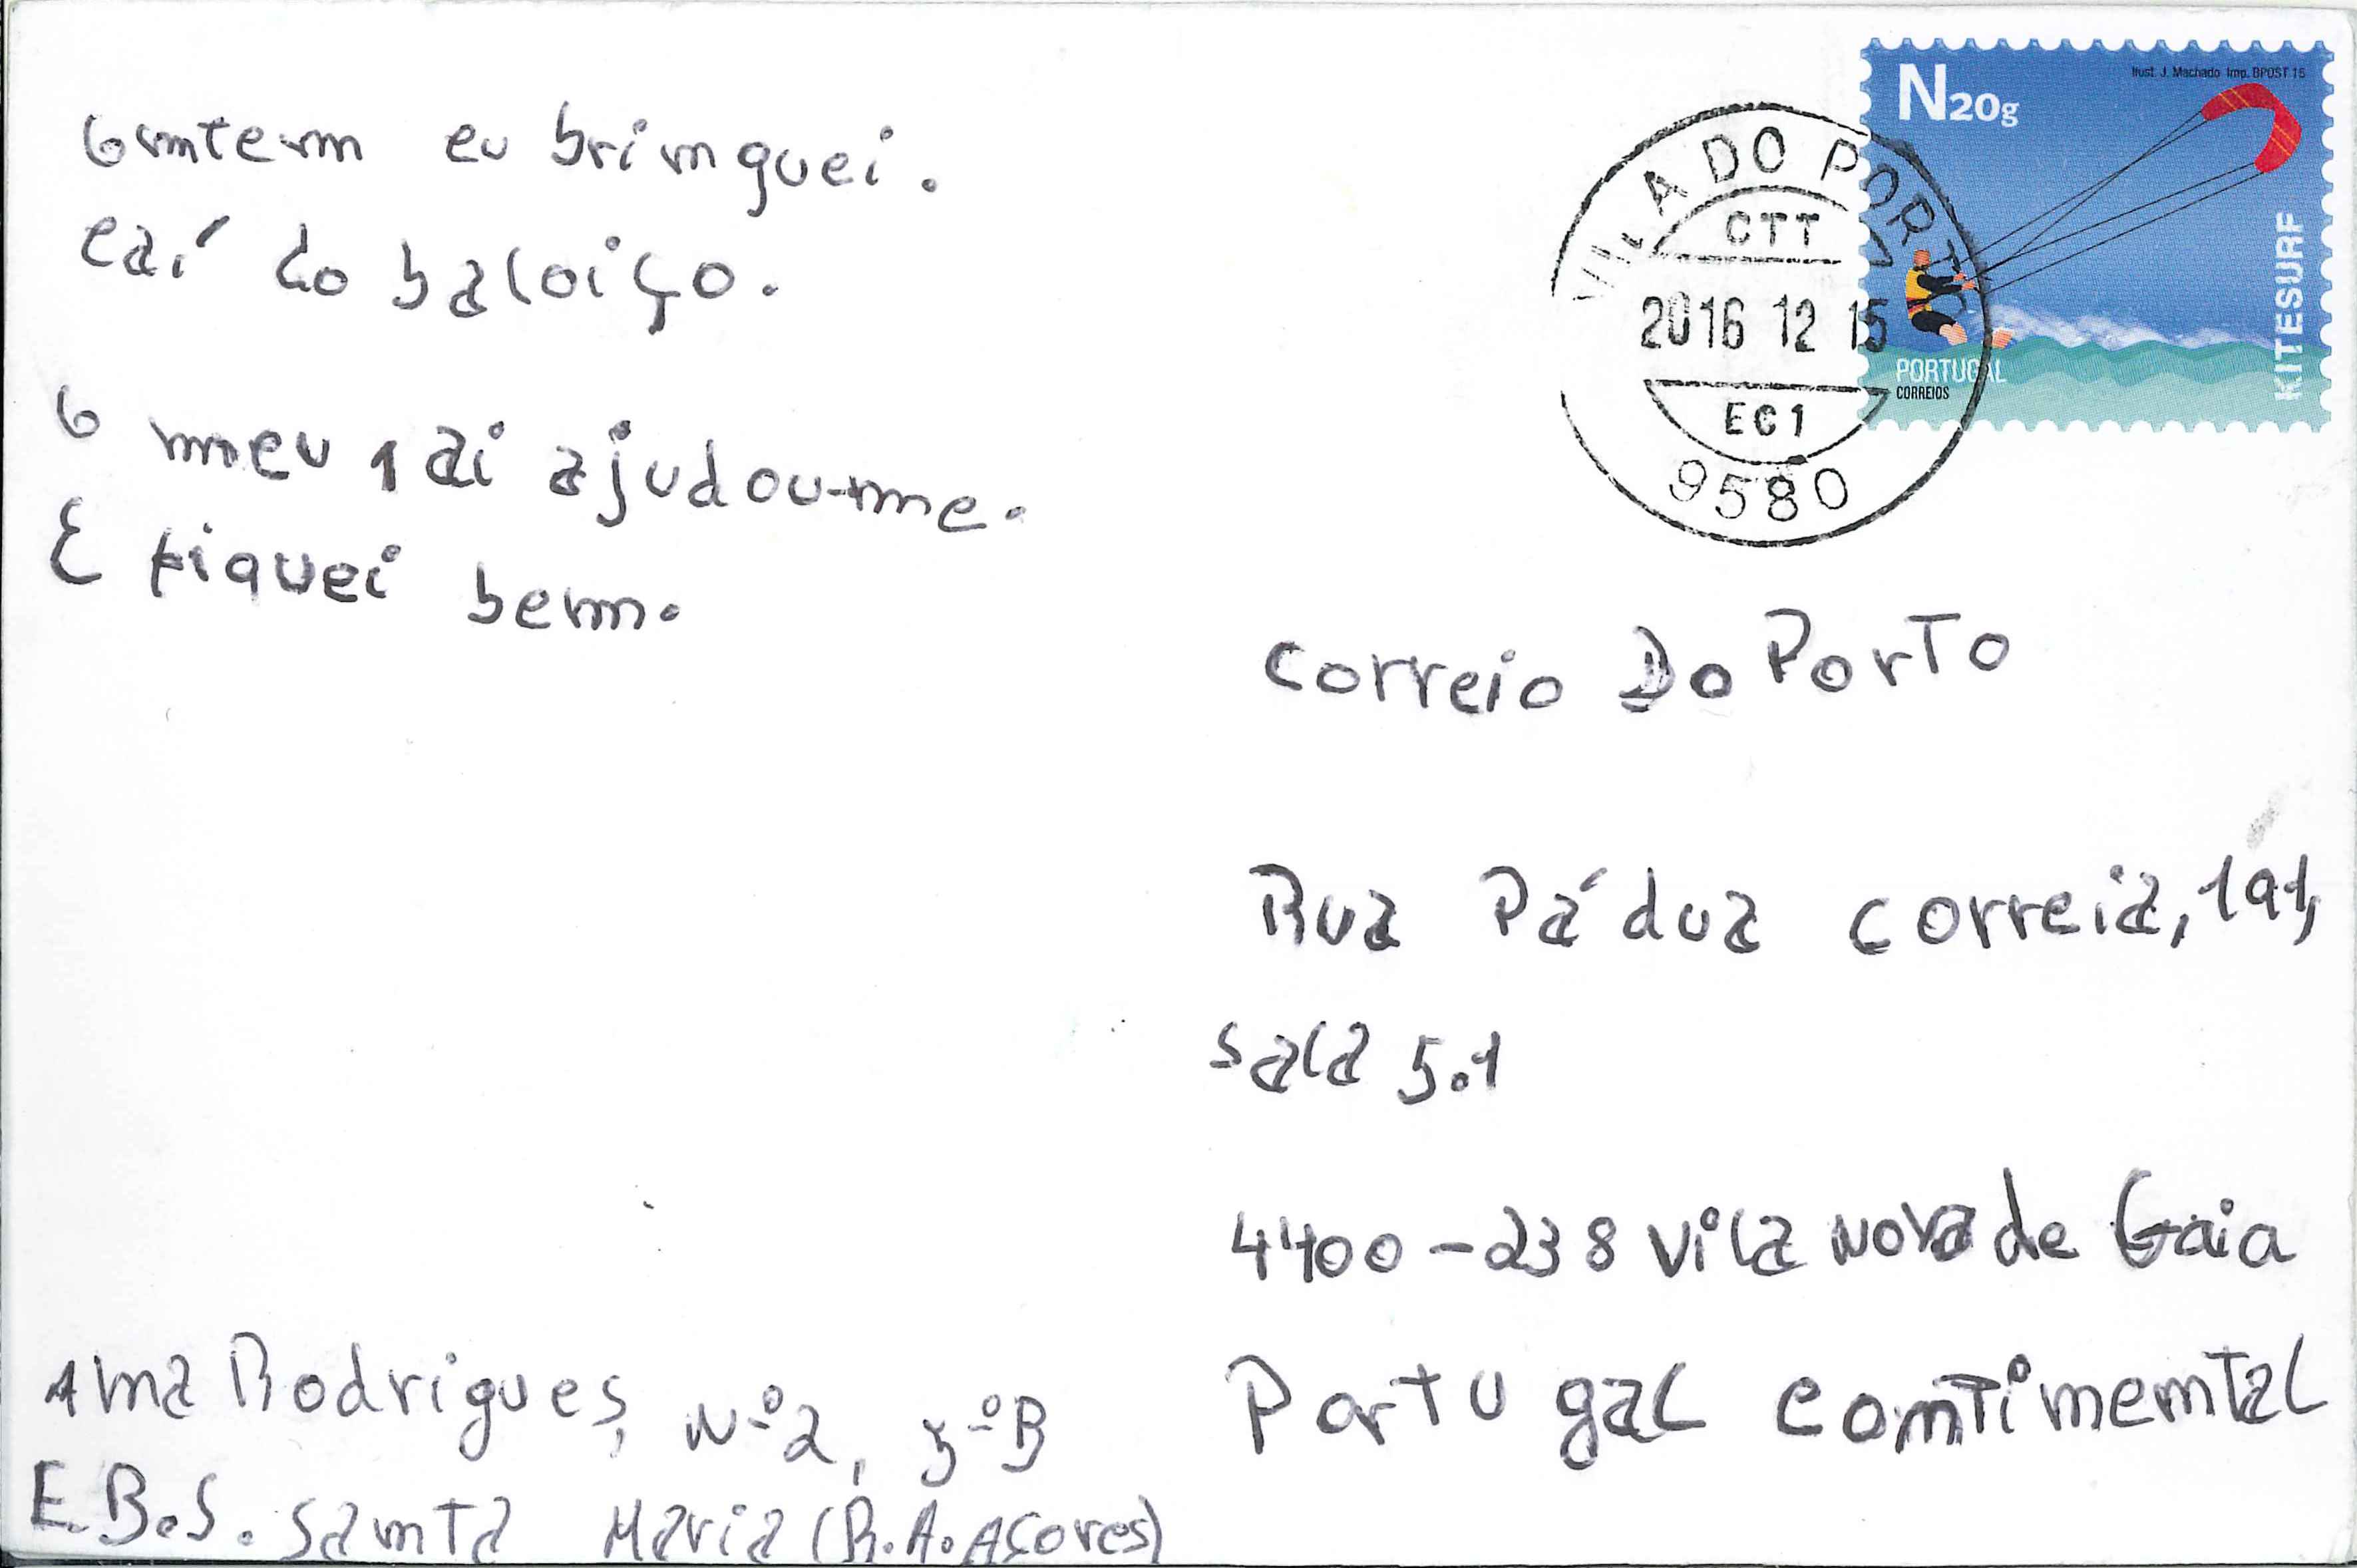 Ontem eu brinquei.
caí do baloiço.
O meu pai ajudou-me.
E fiquei bem.
Ana Rodrigues, Nº2, 5ºB
E.B.S. Santa Maria (R.A. Açores)
N20g
Ilust. J. Machado Imp. BPOST 15
KITESURF
PORTUGAL
CORREIOS
VILA DO PORTO
CTT
2016 12 15
EC1
9580
Correio Do Porto
Rua Pádua Correia, 191,
sala 5.1
4400-238 Vila Nova de Gaia
Portugal continental